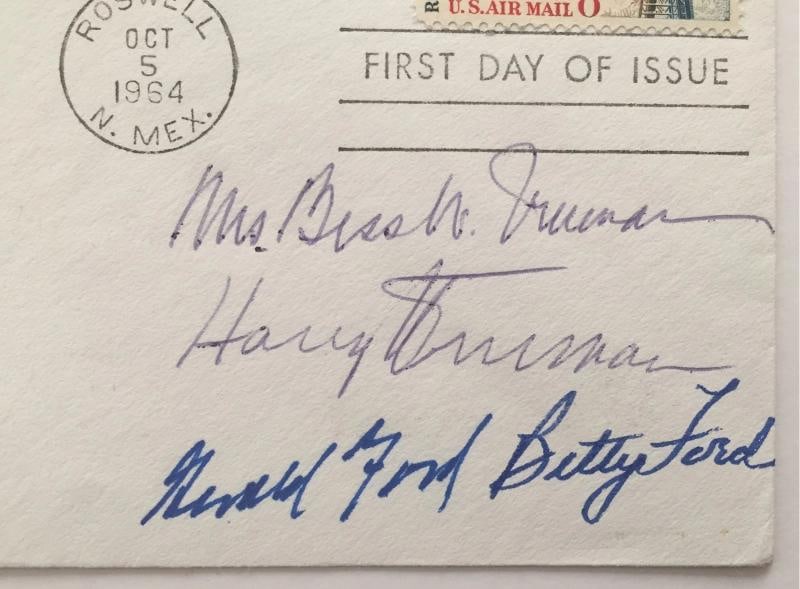 U.S. AIR MAIL 8
ROSWELL
OCT
5
1964
N. MEX.
FIRST DAY OF ISSUE
Mrs. Bess W. Truman
Harry Truman
Gerald Ford Betty Ford